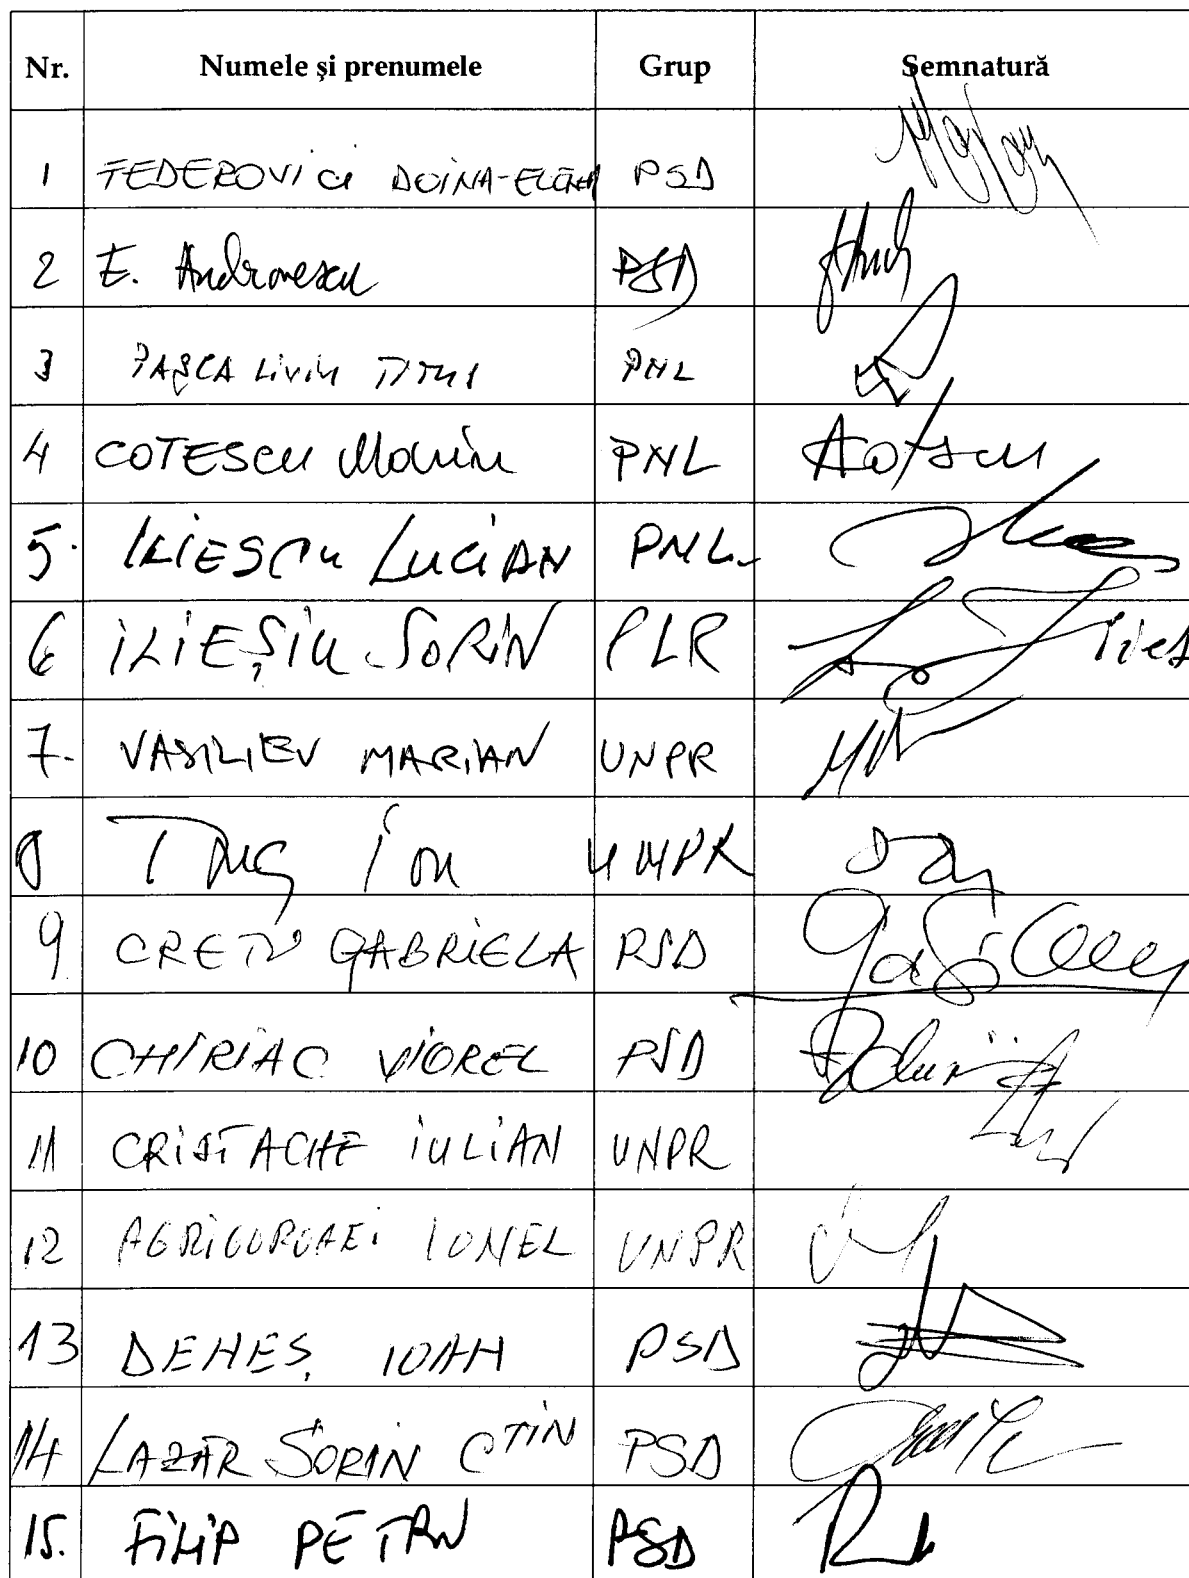 Nr. Numele și prenumele Grup Semnatură
1 FEDEROVICI DOINA-ELENA PSD
2 E. Andronescu PSD
3 PAȘCA LIVIU TITUS PNL
4 COTESCU Marin PNL
5. ILIESCU LUCIAN PNL
6 ILIEȘIU SORIN PLR
7. VASILIEV MARIAN UNPR
8 Ion UNPR
9 CREȚU GABRIELA PSD
10 CHIRIAC VIOREL PSD
11 CRISTACHE IULIAN UNPR
12 AGRIGOROAEI IONEL UNPR
13 DENEȘ IOAN PSD
14 LAZĂR SORIN CTIN PSD
15. FILIP PETRU PSD